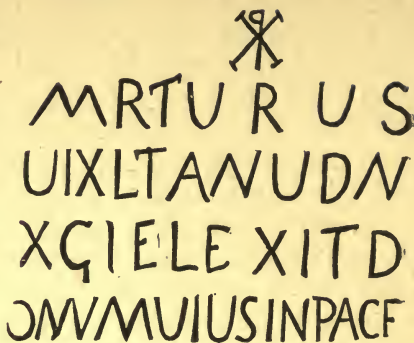 ☧
MRTURUS
UIXLTANUDN
XÇIELEXITD
ƆMVMUIUSINPACF